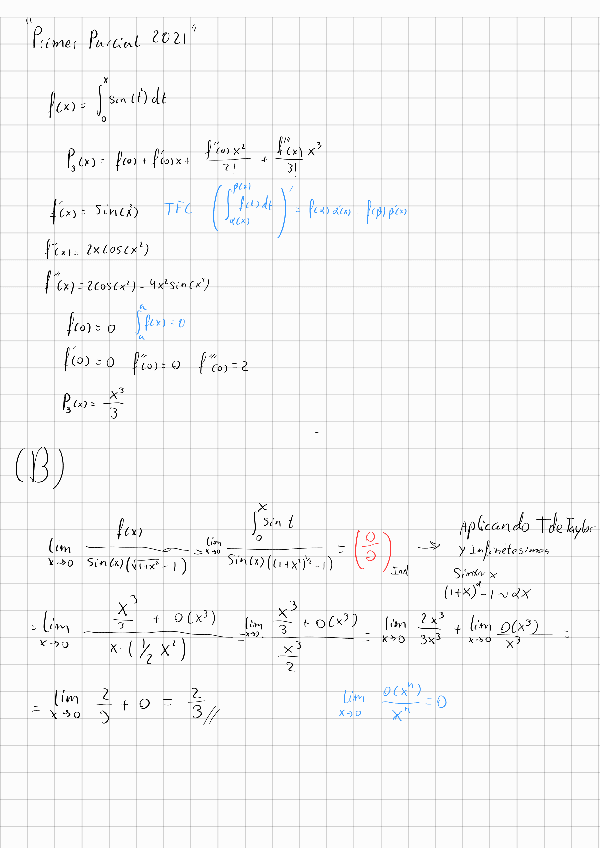 "Primer Parcial 2021"
f(x) = ∫₀ˣ sin(t²) dt
P₃(x) = f(0) + f'(0)x + f''(0)x²/2! + f'''(x)/3! x³
f'(x) = sin(x²) TFC (∫_{α(x)}^{β(x)} f(t) dt)' = f(α) α'(x) f(β) β'(x)
f''(x) = 2x cos(x²)
f'''(x) = 2cos(x²) - 4x² sin(x²)
f(0) = 0 ∫ₐᵃ f(x) = 0
f'(0) = 0 f''(0) = 0 f'''(0) = 2
P₃(x) = x³/3
(B)
lim x→0 f(x) / sin(x)(√(1+x²) - 1) = lim x→0 ∫₀ˣ sin t / sin(x)((1+x²)^(1/2) - 1) = (0/0) Ind → Aplicando T de Taylor
y infinitesimos
Sinx ~ x
(1+x)^α - 1 ~ αx
= lim x→0 (x³/3 + O(x³)) / (x · (1/2 x²)) = lim x→0 (x³/3 + O(x³)) / (x³/2) = lim x→0 2x³/3x³ + lim x→0 O(x³)/x³ =
= lim x→0 2/3 + 0 = 2/3 // lim x→0 O(xⁿ)/xⁿ = 0